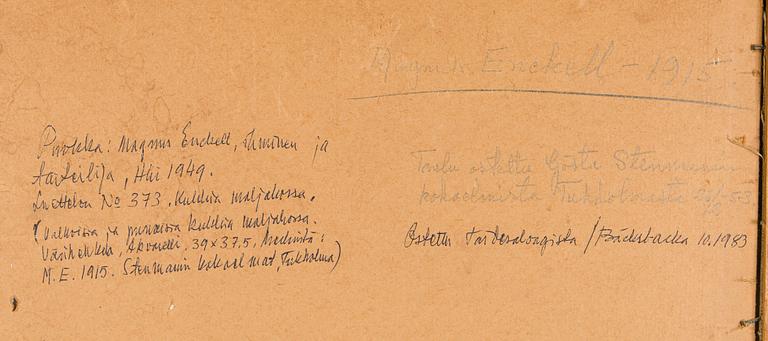 Magnus Enckell – 1915
Puokka: Magnus Enckell, ihminen ja
taiteilija, Hki 1949.
Luettelon No 373, Kukkia maljakossa.
(Valkoisia ja punaisia kukkia maljakossa.
Värihehkua, akvarelli, 39 x 37,5, merkintä:
M.E. 1915. Stenmanin kokoelmat, Tukholma)
Taulu ostettu Gösta Stenmanin
kokoelmista Tukholmasta
Ostettu Taidesalongista / Bäcksbacka 10.1983